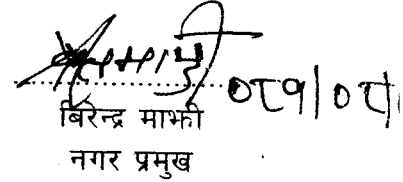 ०८१/०८/
बिरेन्द्र माझी
नगर प्रमुख